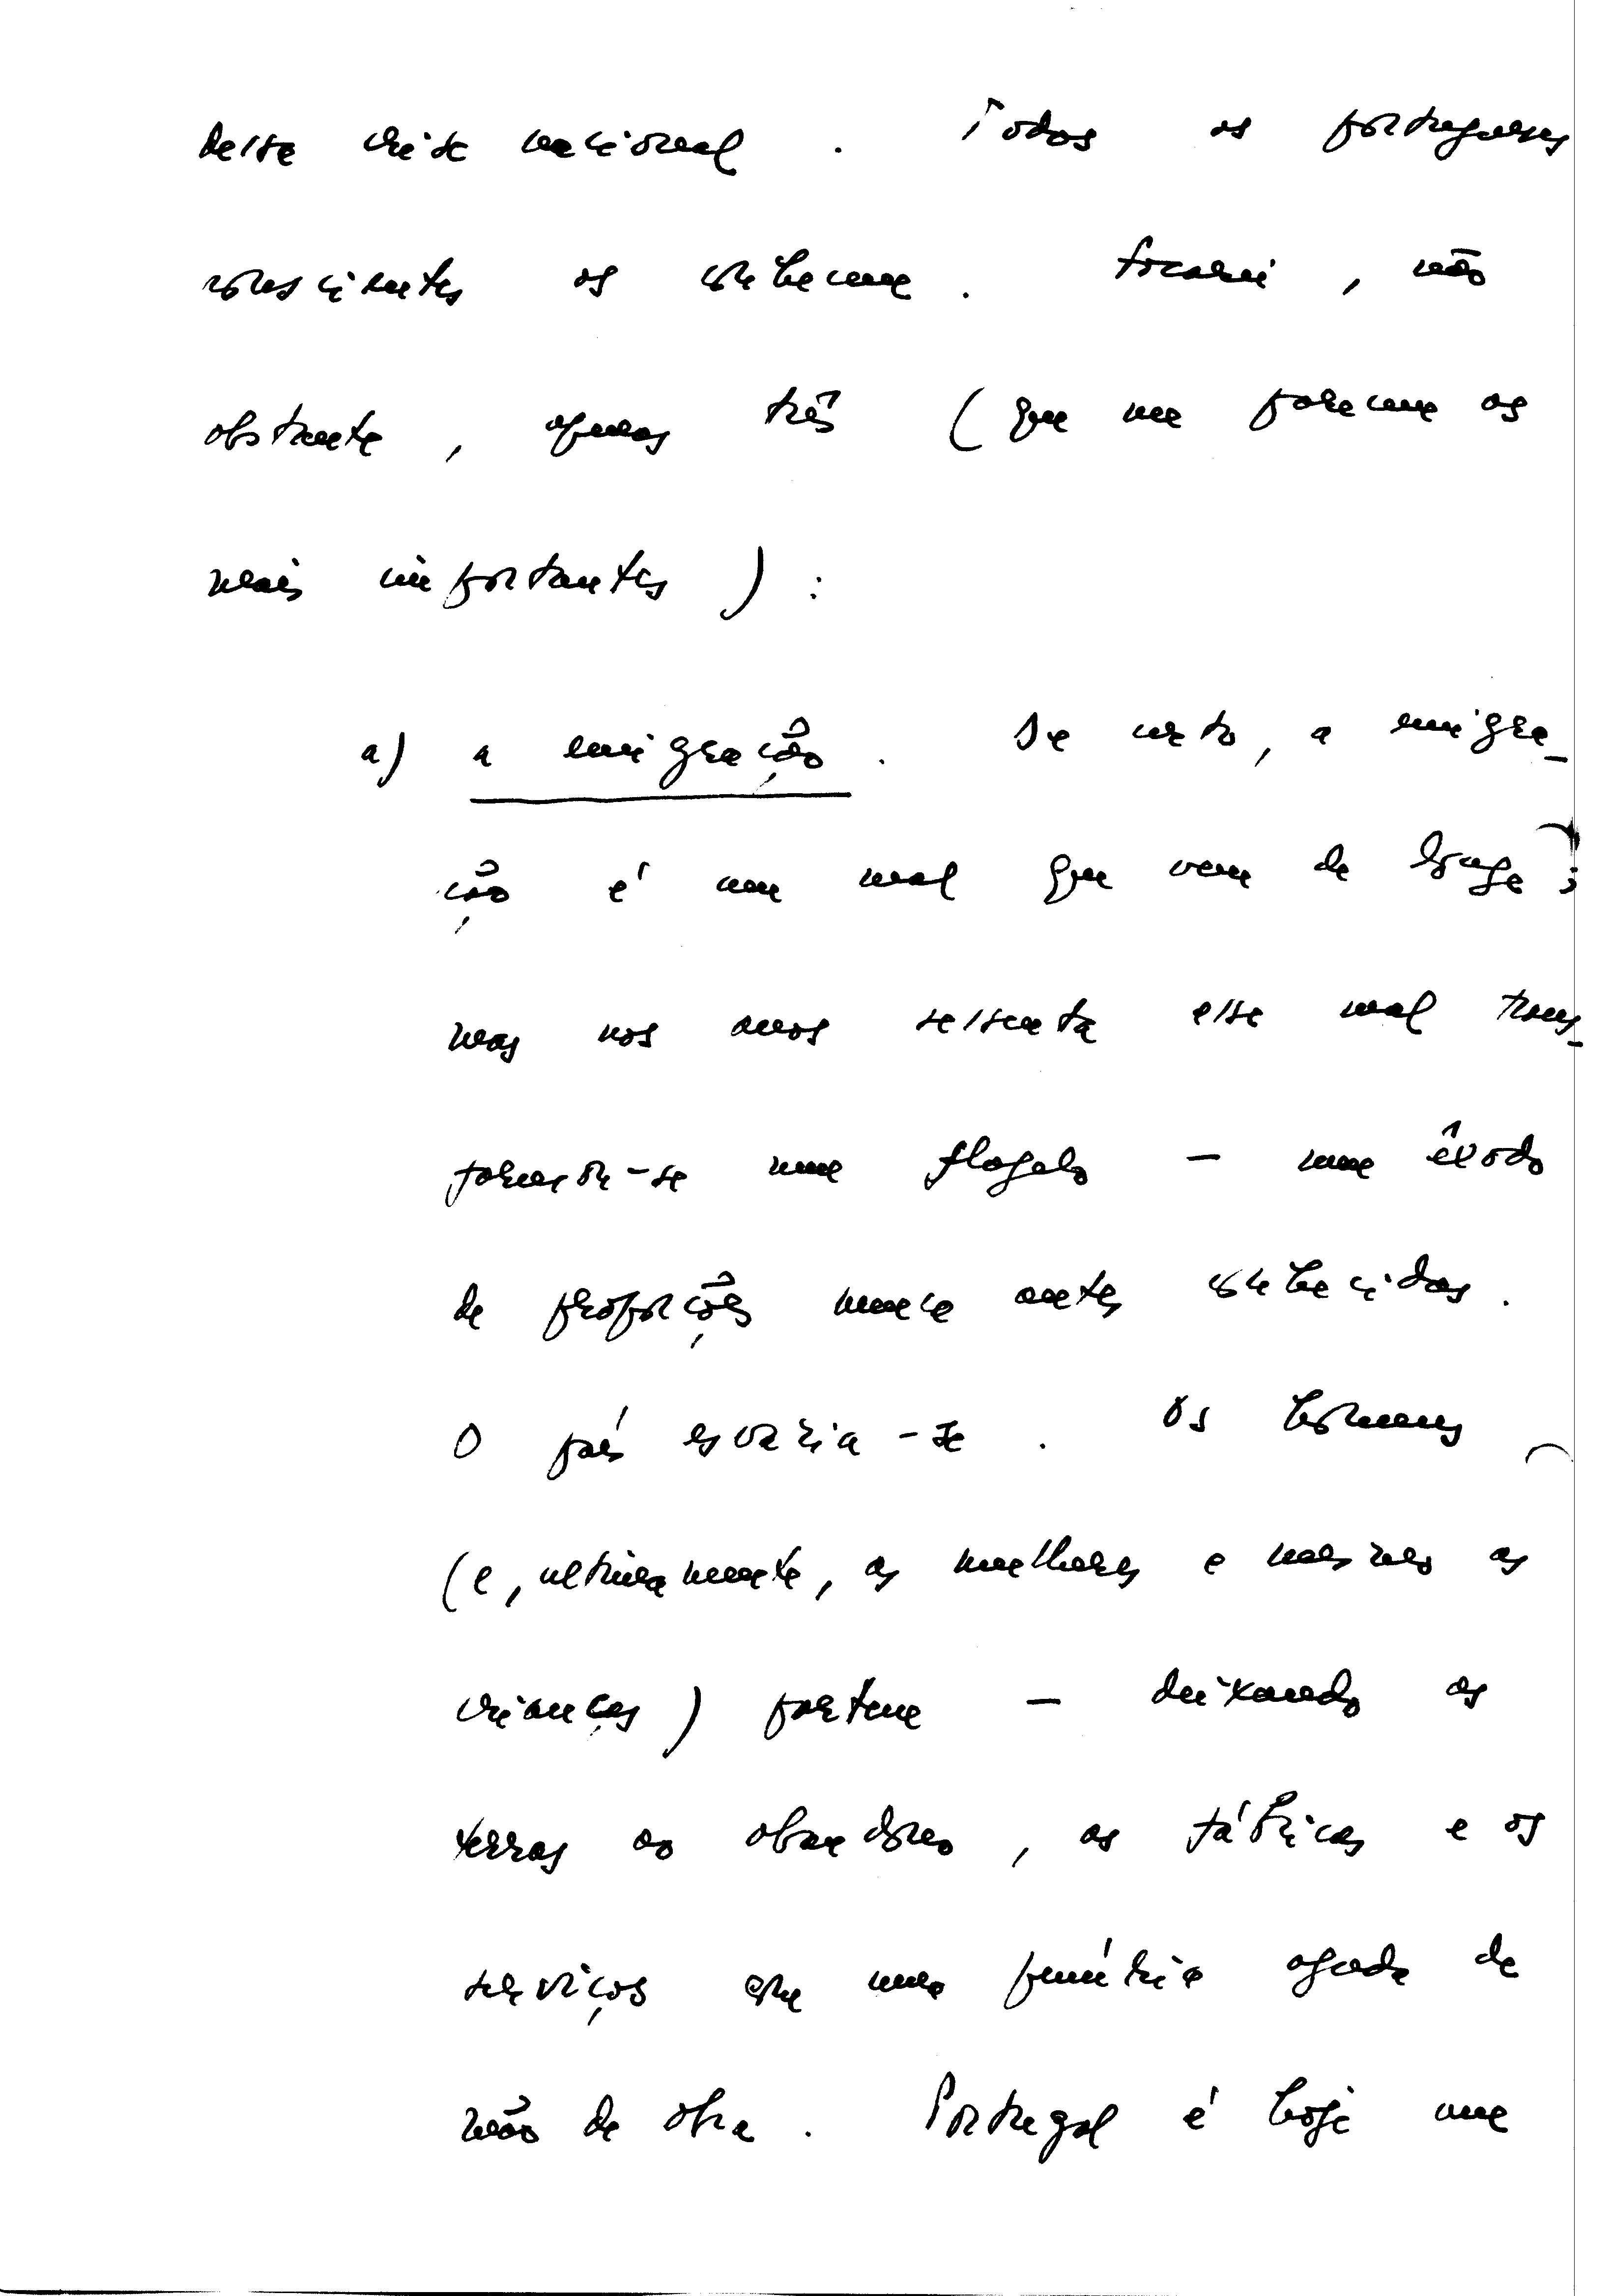 dessa crise nacional. Todos os portugueses
conscientes os conhecem. Focarei, não
obstante, apenas três (que me parecem os
mais importantes):
a) a emigração. De certo, a emigra-
ção é um mal que vem de longe;
mas nos anos sessenta esse mal trans-
formou-se num flagelo - num êxodo
de proporções nunca antes conhecidas.
O país esvazia-se. Os homens
(e, ultimamente, as mulheres e mesmo as
crianças) partem - deixando as
terras ao abandono, as fábricas e os
serviços com uma penúria aguda de
mão de obra. Portugal é hoje um